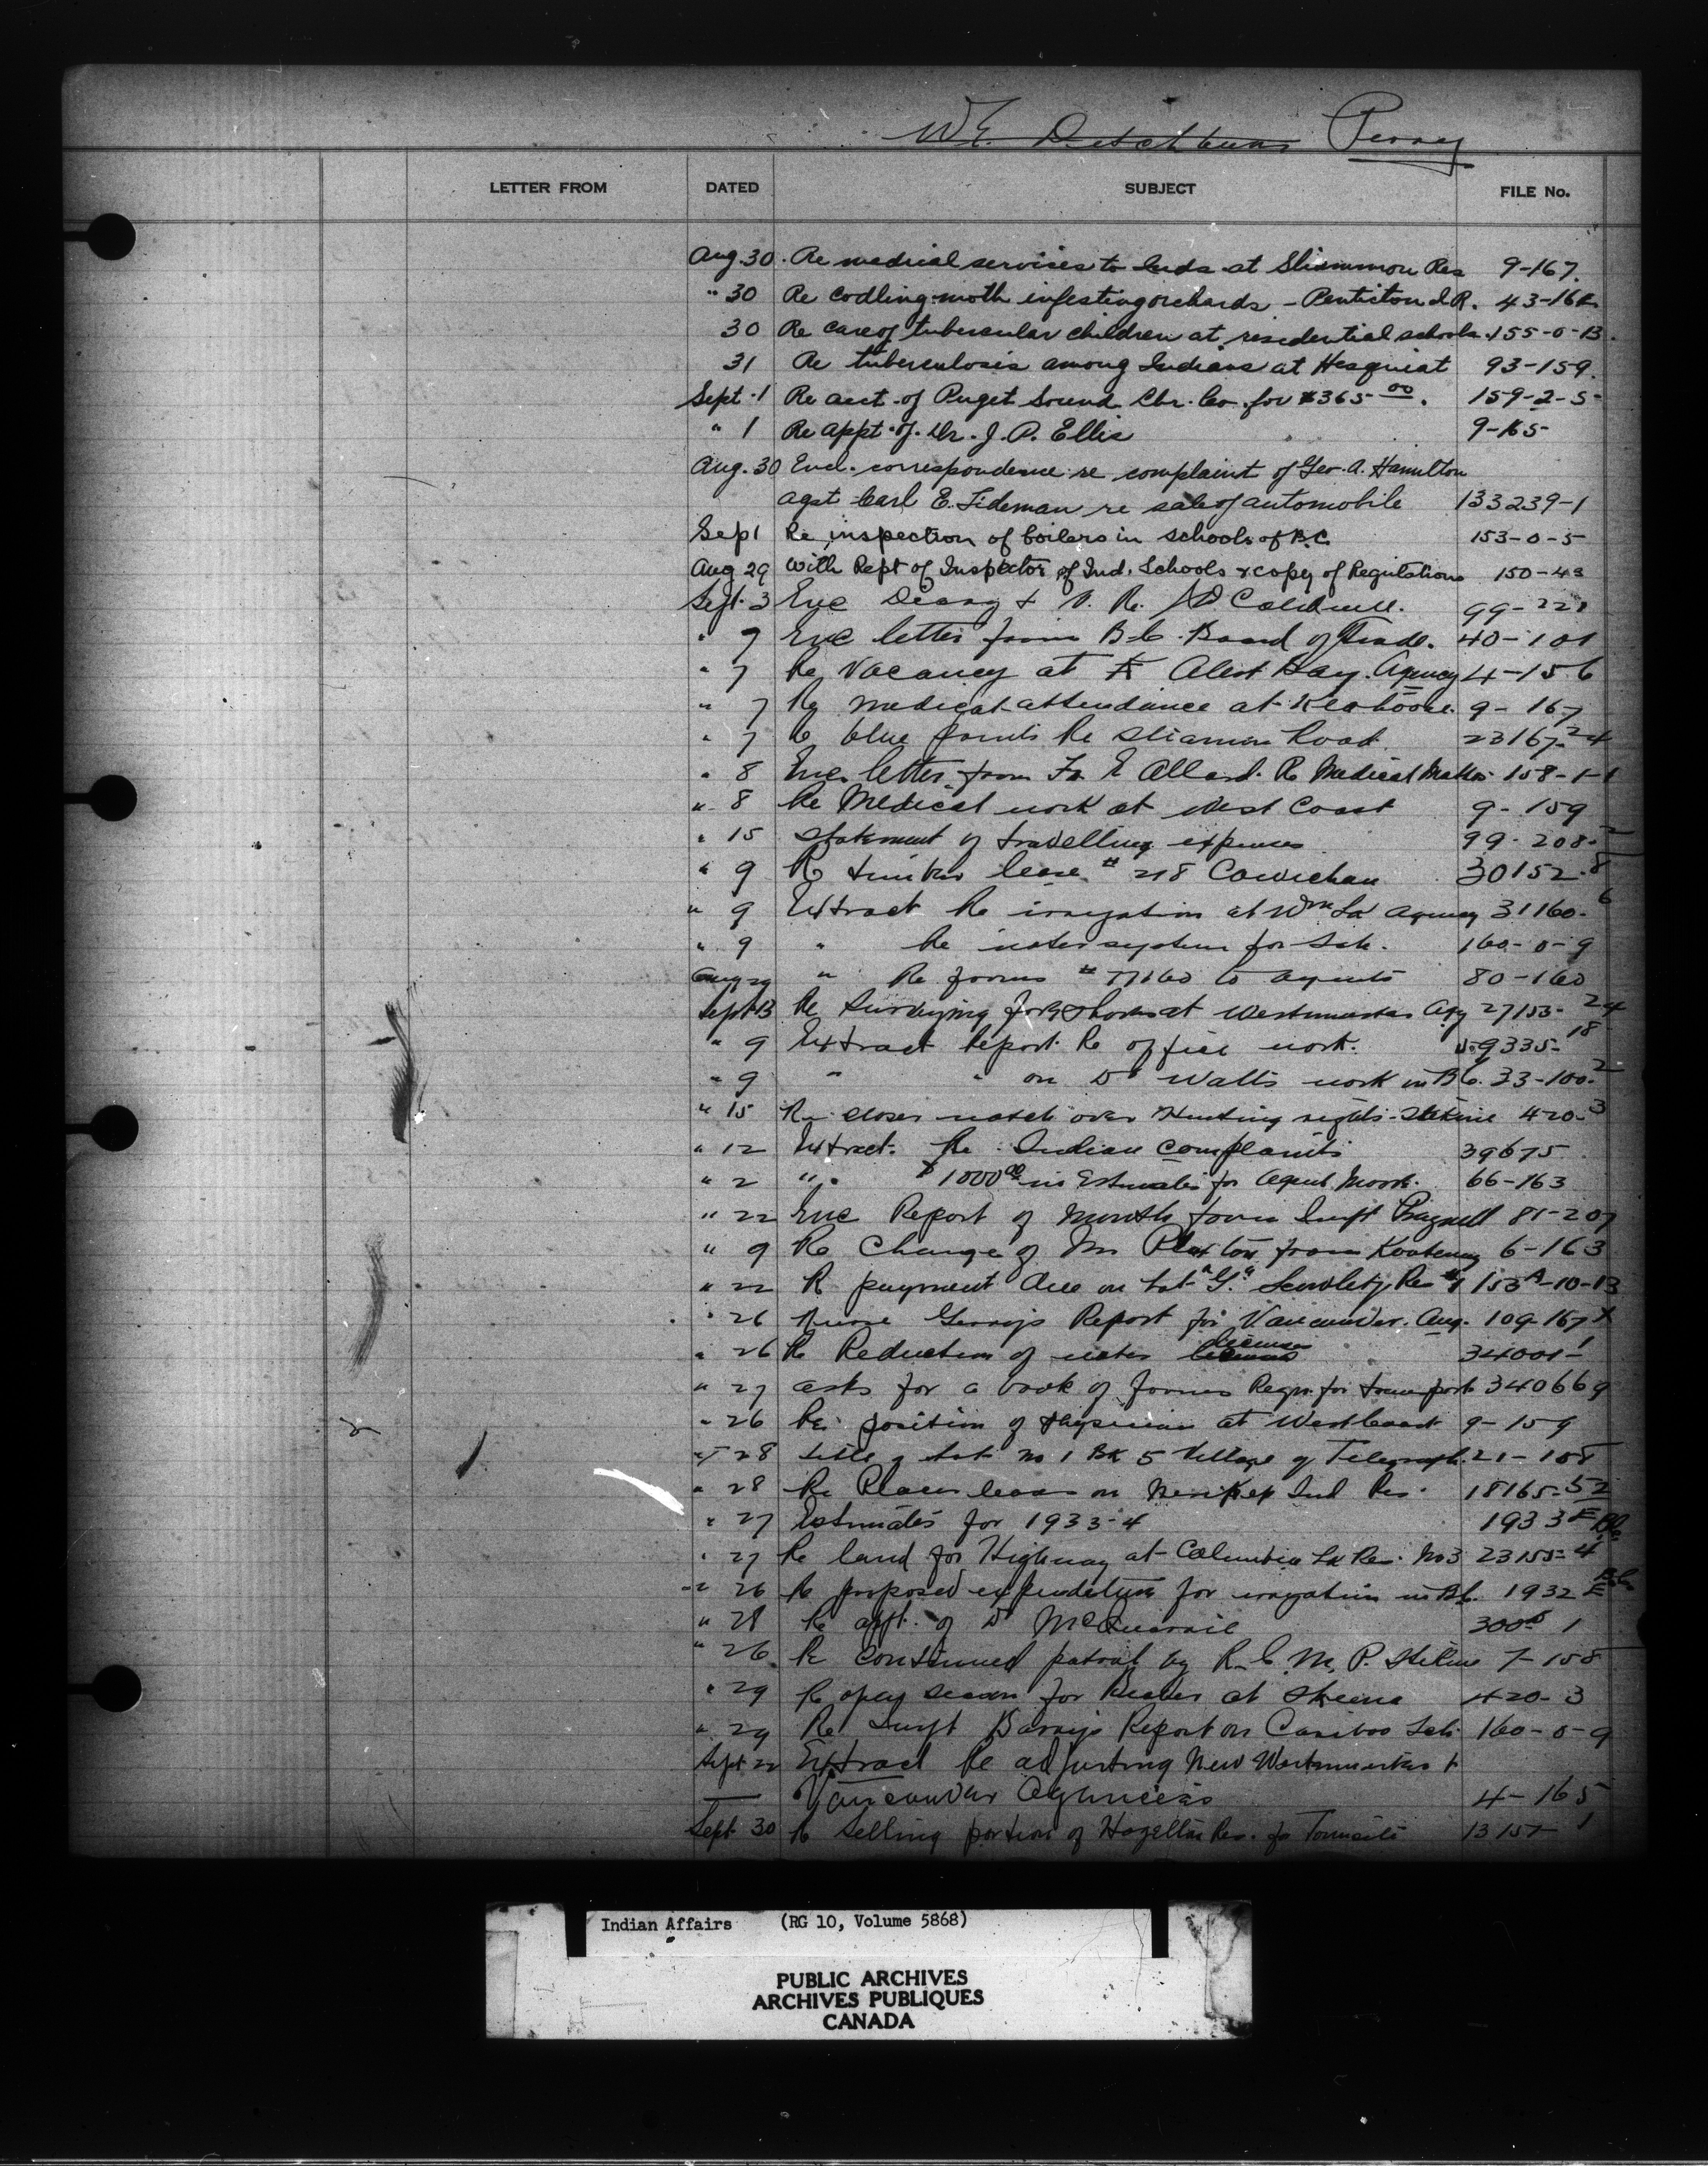 W.E. Ditchburn Perry
LETTER FROM DATED SUBJECT FILE No.
Aug. 30. Re medical services to Inds at Sliammon Res 9-167.
" 30 Re codling moth infesting orchards - Penticton I.R. 43-162
30 Re care of tubercular children at residential schools. 155-0-13.
31 Re tuberculosis among Indians at Hesquiat 93-159.
Sept. 1 Re acct. of Puget Sound Lbr. Co. for $365 00. 159-2-5
" 1 Re appt. of Dr. J. P. Ellis 9-165
Aug. 30 Encl. correspondence re complaint of Geo. A. Hamilton
agst Carl E. Tideman re sale of automobile 133239-1
Sep 1 Re inspection of boilers in schools of B.C. 153-0-5
Aug 29 With Rept of Inspector of Ind. Schools & copy of Regulations 150-43
Sept. 3 Enc Diary & V. Re. 99-221
" 7 Enc letter from B.C. Board of Trade. 40-101
" 7 Re Vacancy at Alert Bay. Agency 4-156
" 7 Re medical attendance at 9-167
" 7 6 blue prints Re Sliamon Road 23167-24
" 8 Enc. letter from Fr E Allard. Re Medical Matters 158-1-1
" 8 Re Medical work at West Coast 9-159
" 15 Statement of travelling expenses 99-208-2
" 9 Re timber lease # 218 Cowichan 30152-8
" 9 Extract Re irrigation at Wms La Agency 31160-6
" 9 " Re water system for Sch. 160-0-9
Aug 29 " Re forms # to agents 80-160
Sept 13 Re Surveying at Westminster Agy 27153-24
" 9 Extract Report Re office work. 59335-18
" 9 " " on Dr Watts work in B.C. 33-100-2
" 15 Re closer watch over Hunting rights - Stikine 420-3
" 12 Extract. Re Indian Complaints 39675
" 2 " $1000 00 in Estimates for Agent 66-163
" 22 Enc Report of Month from Inspt Pragnell 81-207
" 9 Re Change of Mr from Kootenay 6-163
" 22 Re payment due on Lot "G" Res #1 153A-10-13
" 26 Nurse Report for Vancouver. Aug. 109-167
" 26 Re Reduction of water licenses 34001-1
" 27 asks for a book of forms Reqn. for transport 340669
" 26 Re position of Physician at West Coast 9-159
" 28 title of Lot No 1 Bk 5 Village of Telegraph 21-158
" 28 Re Placer lease on Ind Res. 18165-52
" 27 Estimates for 1933-4 1933 E B.C.
" 27 Re land for Highway at Columbia La Res. No 3 23155-4
" 26 Re proposed expenditure for irrigation in B.C. 1932 E B.C.
" 28 Re appt. of Dr McQuarrie 1
" 26. Re continued patrol by R.C.M.P. Stikine 7-158
" 29 Re open season for Beaver at Skeena 420-3
" 29 Re Inspt Barry's Report on Cariboo Sch 160-0-9
Sept 22 Extract Re adjusting New Westminster &
Vancouver Agencies 4-165
Sept 30 Re Selling portion of Hazelton Res. for Townsite 13157-1
Indian Affairs (RG 10, Volume 5868)
PUBLIC ARCHIVES
ARCHIVES PUBLIQUES
CANADA